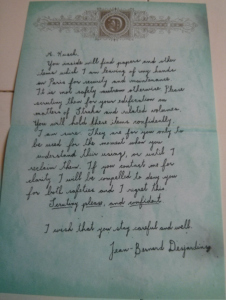 M. Kusek
You inside will find papers and other
items which I am leaving of my hands
in Paris for security and maintenance.
It is not safely outdoors otherwise. Please
scrutiny them for your edification in
matters of Thrake and related volumes.
You will hold these items confidently,
I am sure. They are for you only to
be used for the moment when you
understand their usings, or until I
reclaim them. If you contact me for
clarity I will be impelled to deny you
for both safeties and I regret this.
Scrutiny please, and confident.
I wish that you stay careful and well.
Jean-Bernard Desjardins